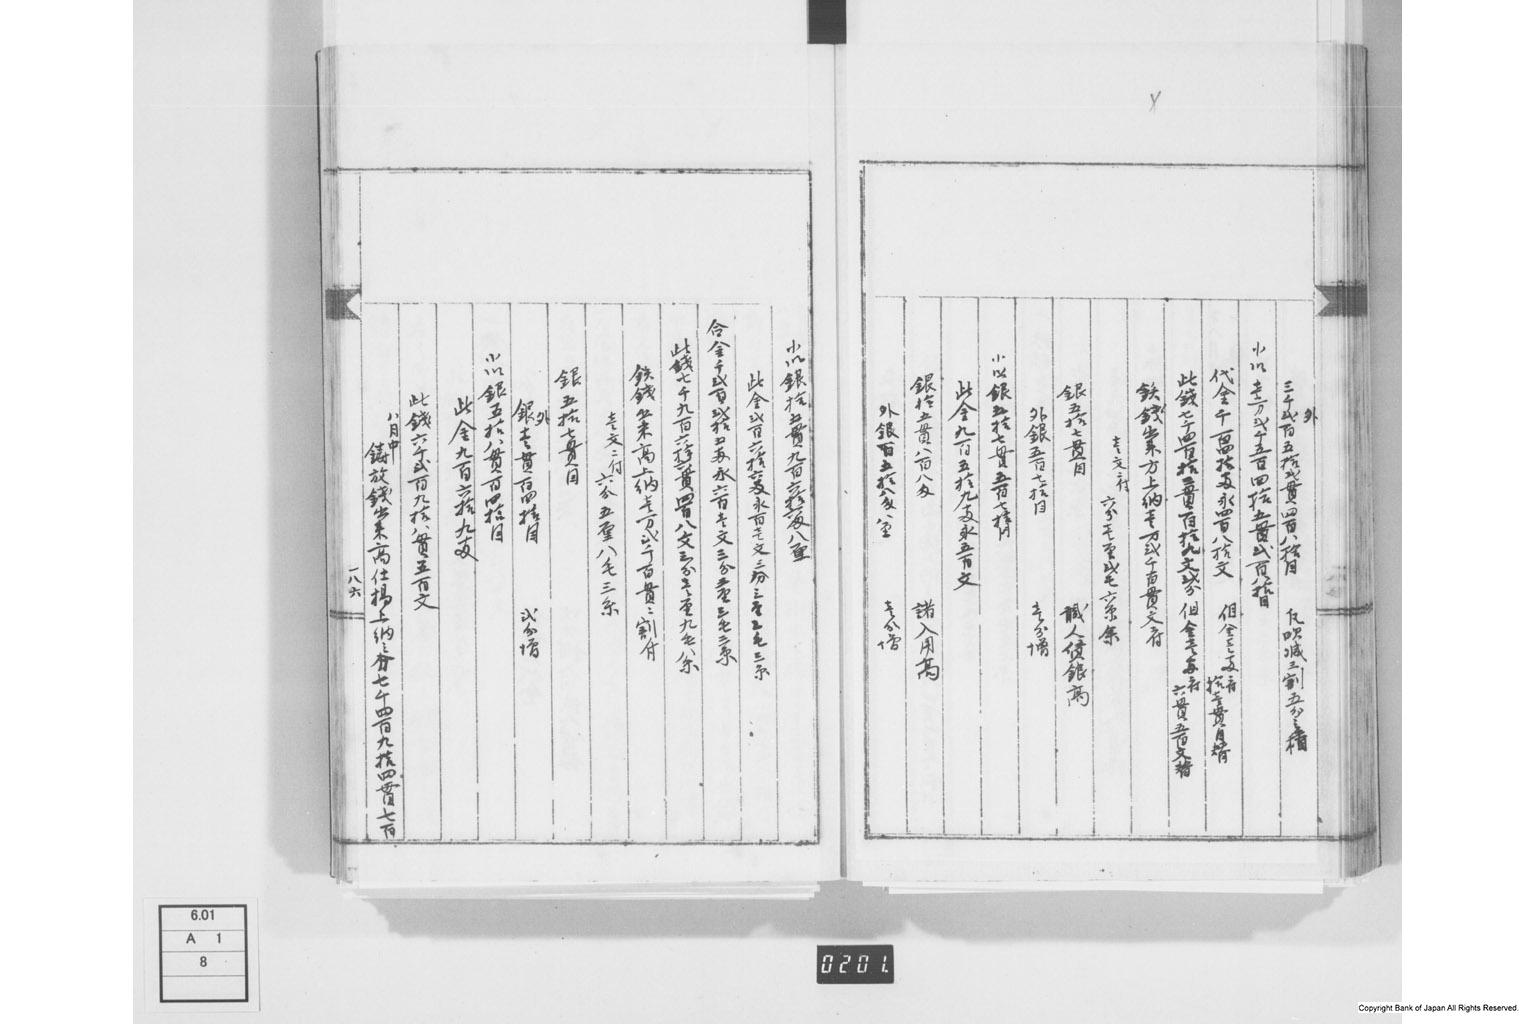 外
三千弐百五拾弐貫四百八拾目 反吹減三割五分之積
小以壱万弐千五百四拾五貫弐百八拾目
代金千百四拾両永四百八拾文 但金壱両ニ付拾壱貫目替
此銭七千四百拾三貫百拾九文弐分 但金壱両ニ付六貫五百文替
鉄銭出来方上納壱万弐千百貫文ニ付
壱文ニ付
六分壱厘弐毛六糸余
銀五拾七貫目 職人借銀高
外銀五百七拾目 壱分増
小以銀五拾七貫五百七拾目
此金九百五拾九両永五百文
銀拾五貫八百八匁 諸入用高
外銀百五拾八匁八厘 壱分増
小以銀拾五貫九百六拾六匁八厘
此金弐百六拾六両永百壱文三分三厘三毛三糸
合金千弐百弐拾五両永六百壱文三分三厘三毛三糸
此銭七千九百六拾六貫四百八文六分六厘九毛八糸
鉄銭出来高上納壱万弐千百貫ニ割付
壱文ニ付
六分五厘八毛三糸
銀五拾七貫目
外
銀壱貫百四拾目 弐分増
小以銀五拾八貫百四拾目
此金九百六拾九両
此銭六千弐百九拾八貫五百文
八月中
鋳放銭出来高仕揚上納之分七千四百九拾四貫七百
一八六
6.01
A 1
8
0201.
Copyright Bank of Japan All Rights Reserved.